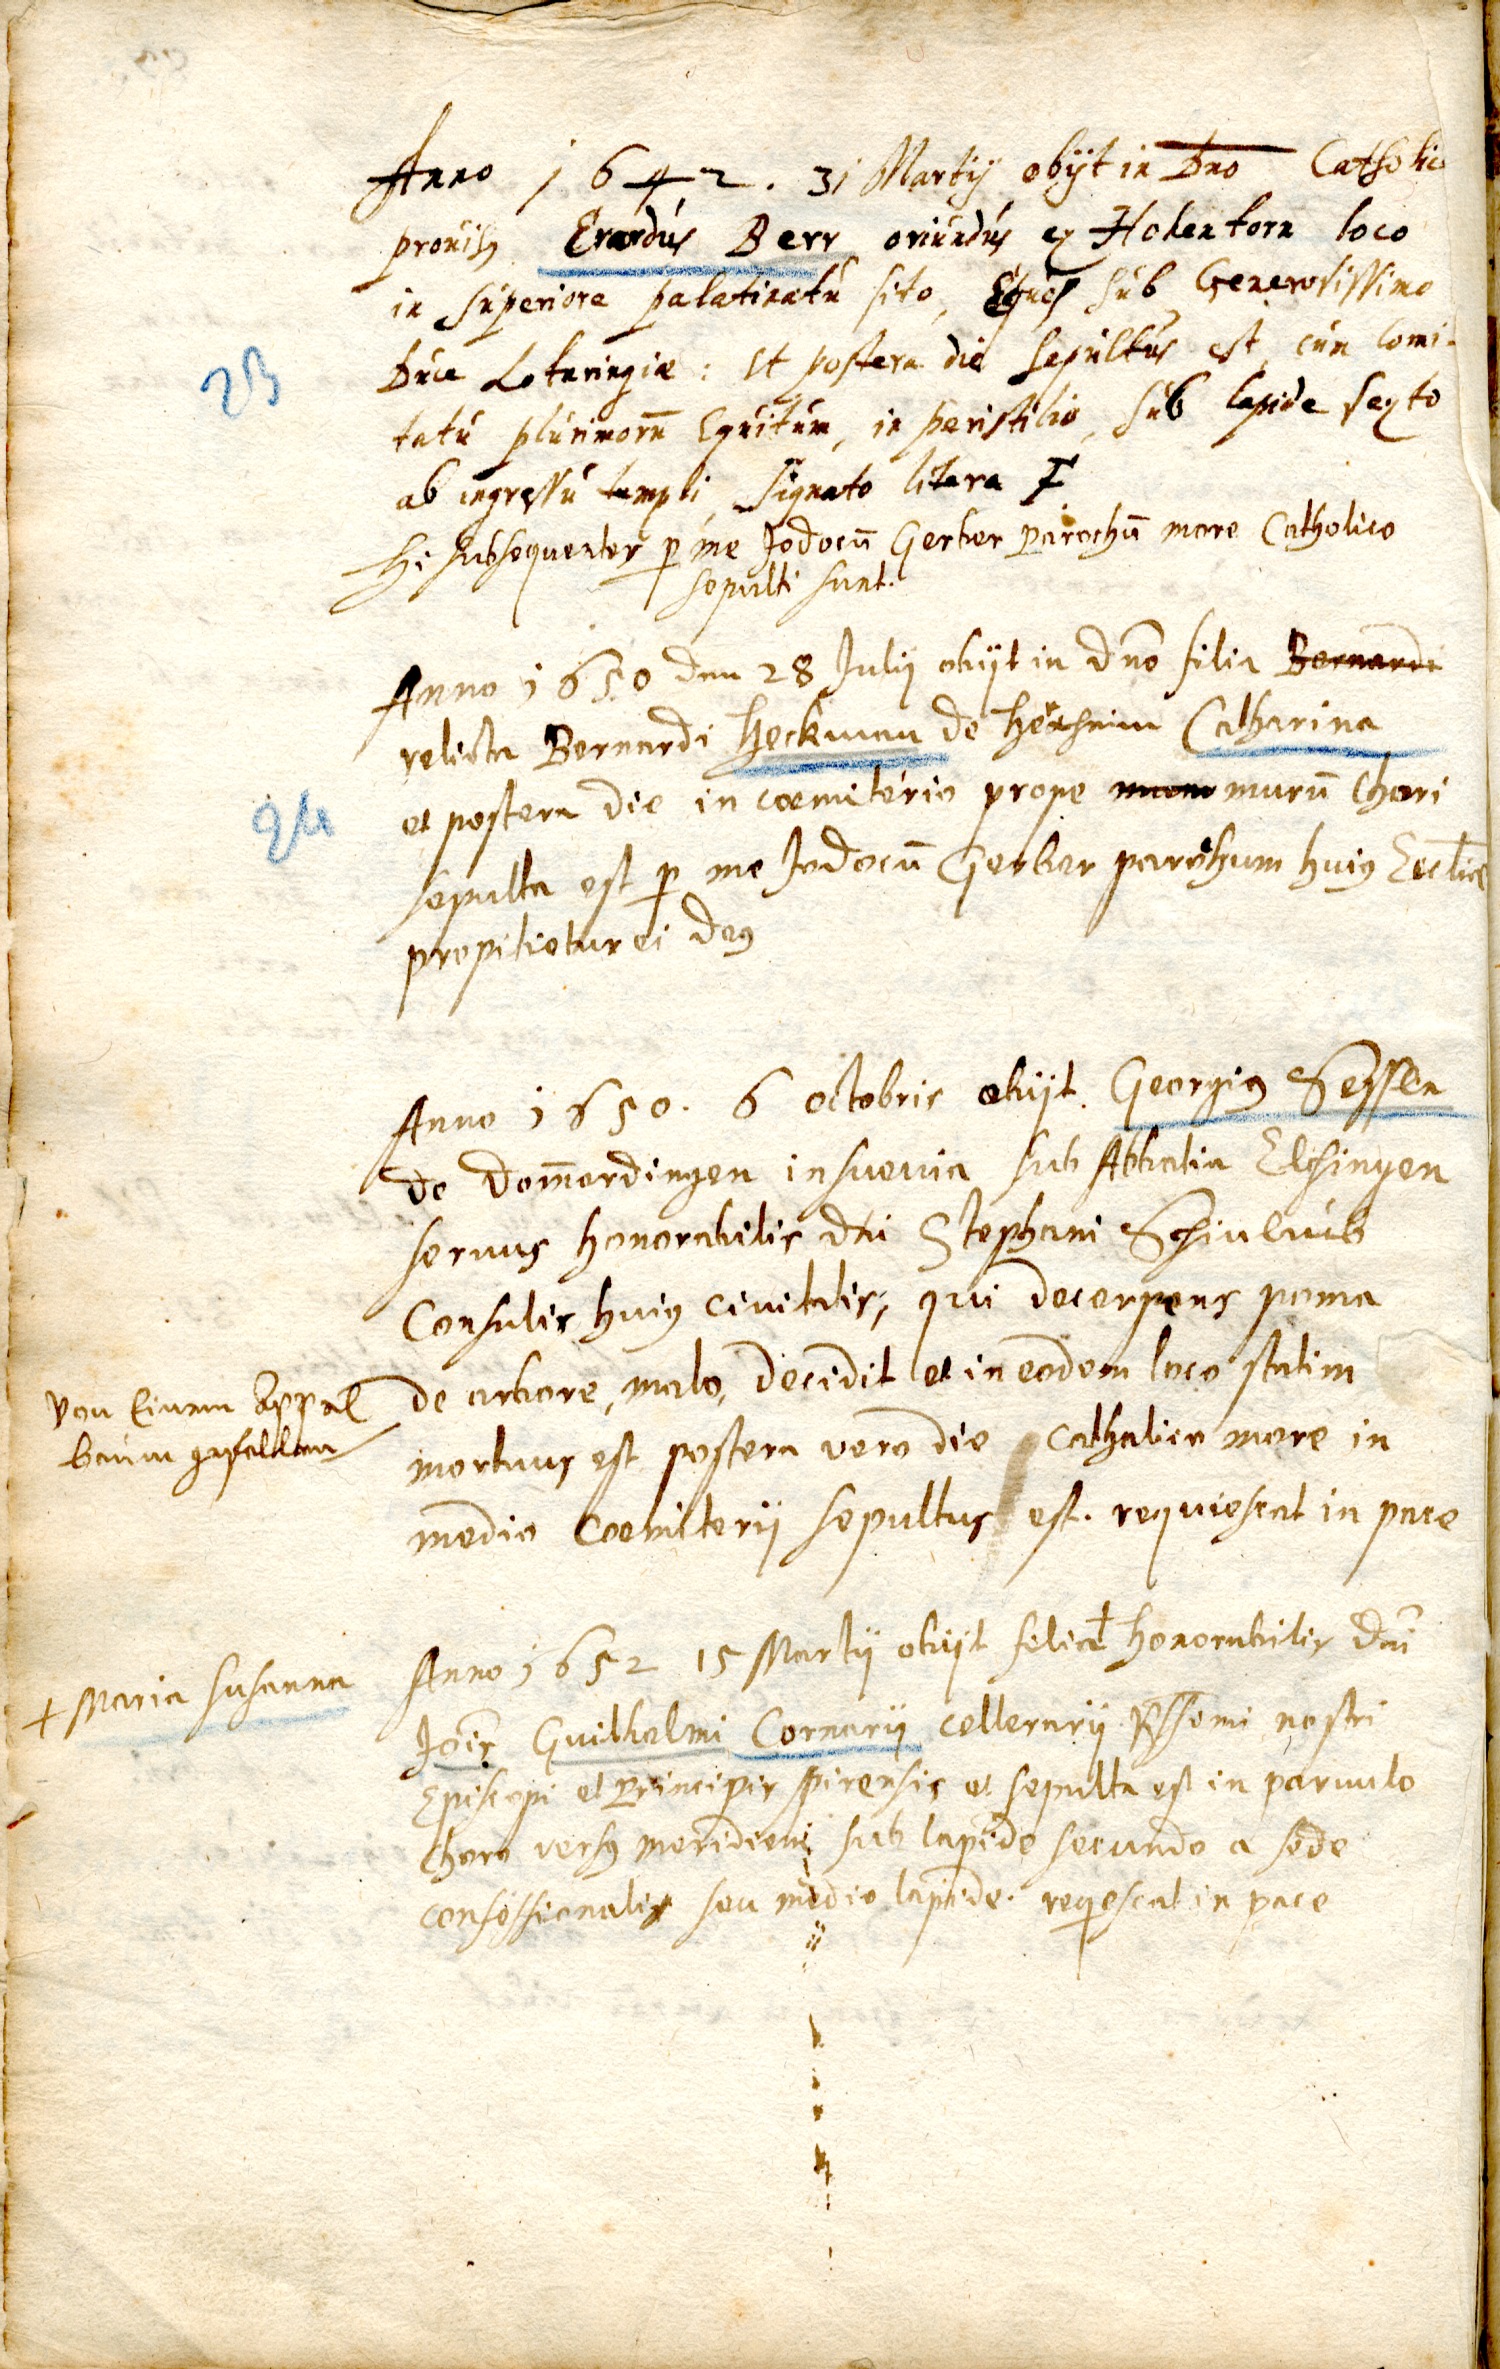 Anno 1642. 31 Martij obijt in Dno Catholice
prouisus Erardús Berr oriúndús ex Hohenforn loco
in súperiore palatinatú sito, Eques súb Generosissimo
Dúce Lotaringiæ: et postera die sepúltús est, cúm comi-
tatú plúrimorū Equitúm, in peristilio, súb lapide sexto
ab ingressú templi, signato litera F
Hi subsequenter p me Jodocū Gerber parochū more Catholico
sepulti sunt.
23
Anno 1650 den 28 Julij obijt in dno filia Bernardi
relicta Bernardi Heckman de Herxheim Catharina
et postera die in coemiterio prope murū Chori
sepulta est p me Jodocū Gerber parochum huiq Eccliæ
propitietur ei deq
24
Anno 1650. 6 octobris obijt Georgiq
de Dom̄erdingen in sueuia sub Abbatia Elchingen
seruus honorabilis dni Stephani
Consulis huiq ciuitatis, qui decerpens poma
de arbore, malo, decidit et in eodem loco statim
mortuus est postera vero die catholico more in
medio Coemiterij sepultus est. requiescat in pace
von Einem Appel
baum gefallen
Anno 1652 15 Martij obijt filiola honorabilis dni
Jois Guilhelmi Cornarij cellerarij Rssimi nostri
Episcopi et Principis spirensis et sepulta est in paruulo
choro versq meridiem sub lapide secundo a sede
confessionalis seu medio lapide. reqiescat in pace
+ Maria Susanna